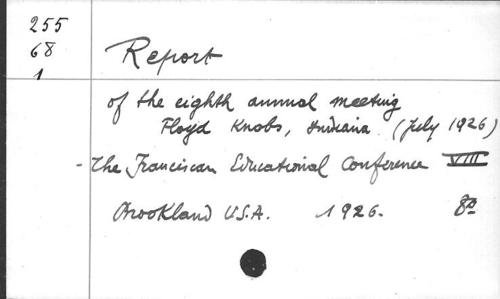 255
68
1
Report
of the eighth annual meeting
Floyd Knobs, Indiana. (July 1926)
- The Franciscan Educational Conference VIII
Brookland U.S.A. 1926. 8º